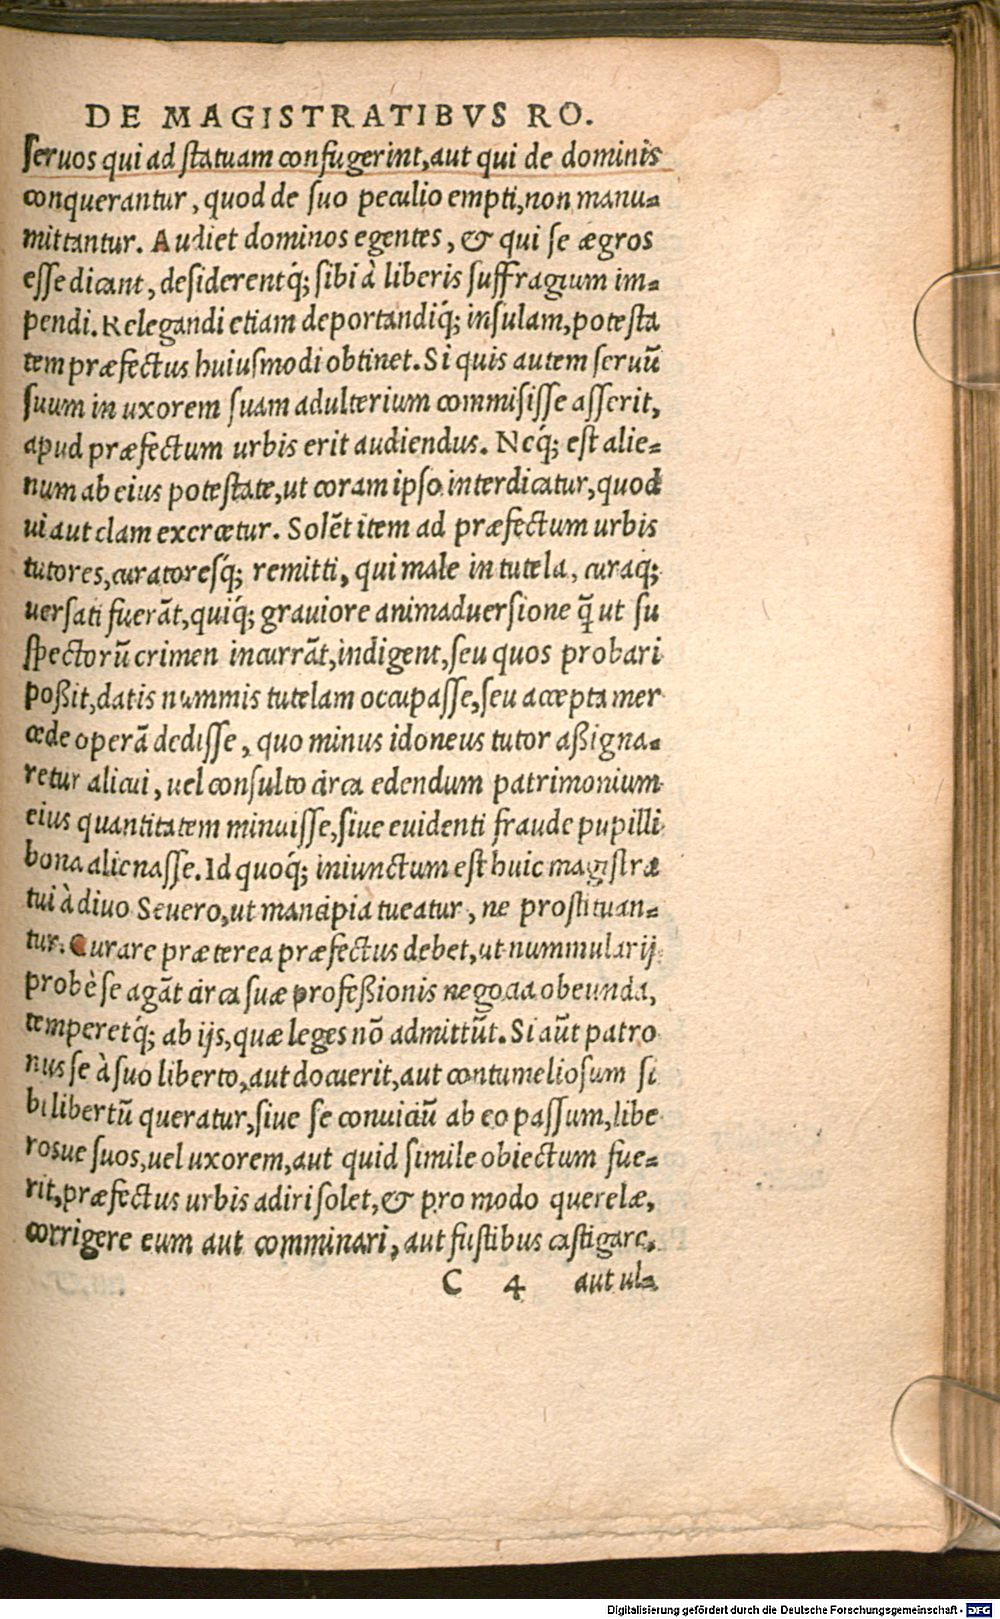 DE MAGISTRATIBVS RO.
ſeruos qui ad ſtatuam confugerint, aut qui de dominis
conquerantur, quod de ſuo peculio empti, non manu-
mittantur. Audiet dominos egentes, & qui ſe ægros
eſſe dicant, deſiderentq́; ſibi à liberis ſuffragium im-
pendi. Relegandi etiam deportandiq́; inſulam, poteſta
tem præfectus huiuſmodi obtinet. Si quis autem ſeruũ
ſuum in uxorem ſuam adulterium commiſiſſe aſſerit,
apud præfectum urbis erit audiendus. Neq́; eſt alie-
num ab eius poteſtate, ut coram ipſo interdicatur, quod
ui aut clam excrcetur. Solẽt item ad præfectum urbis
tutores, curatoresq́; remitti, qui male in tutela, curaq;
uerſati fuerãt, quiq́; grauiore animaduerſione q̃ ut ſu
ſpectorũ crimen incurrãt, indigent, ſeu quos probari
poßit, datis nummis tutelam occupaſſe, ſeu accepta mer
cede operã dediſſe, quo minus idoneus tutor aßigna-
retur alicui, uel conſulto circa edendum patrimonium
eius quantitatem minuiſſe, ſiue euidenti fraude pupilli
bona alienaſſe. Id quoq́; iniunctum eſt huic magiſtra
tui à diuo Seuero, ut mancipia tueatur, ne proſtituan-
tur. Curare præterea præfectus debet, ut nummularij
probè ſe agãt circa ſuæ profeßionis negocia obeunda,
temperetq́; ab ijs, quæ leges nõ admittũt. Si aũt patro
nus ſe à ſuo liberto, aut docuerit, aut contumelioſum ſi
bi libertũ queratur, ſiue ſe conuiciũ ab eo paſſum, libe
rosue ſuos, uel uxorem, aut quid ſimile obiectum fue-
rit, præfectus urbis adiri ſolet, & pro modo querelæ,
corrigere eum aut comminari, aut fuſtibus caſtigare,
C 4 aut ul-
Digitalisierung gefördert durch die Deutsche Forschungsgemeinschaft - DFG